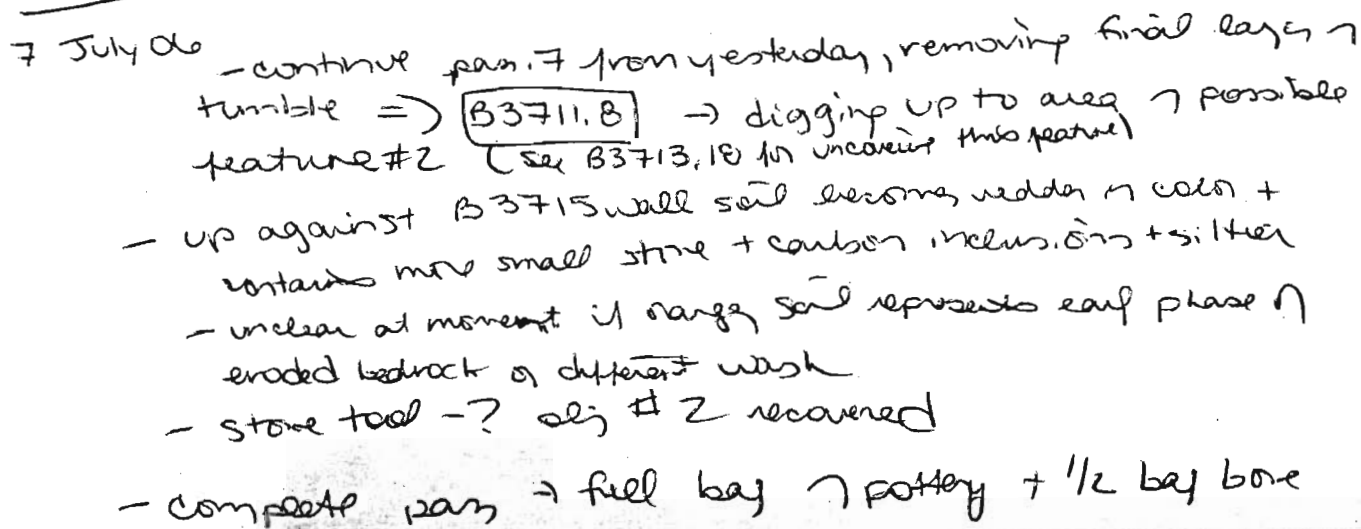 7 July 06
- continue pass. 7 from yesterday, removing final layer of
tumble => B3711.8 → digging up to area of possible
feature #2 (see B3713.18 for uncovering this feature)
- up against B3715 wall soil becomes redder in color +
contains more small stone + carbon inclusions + siltier
- unclear at moment if orangey soil represents early phase of
eroded bedrock or different wash
- stone tool -? obj # 2 recovered
- complete pass → full bag of pottery + 1/2 bag bone